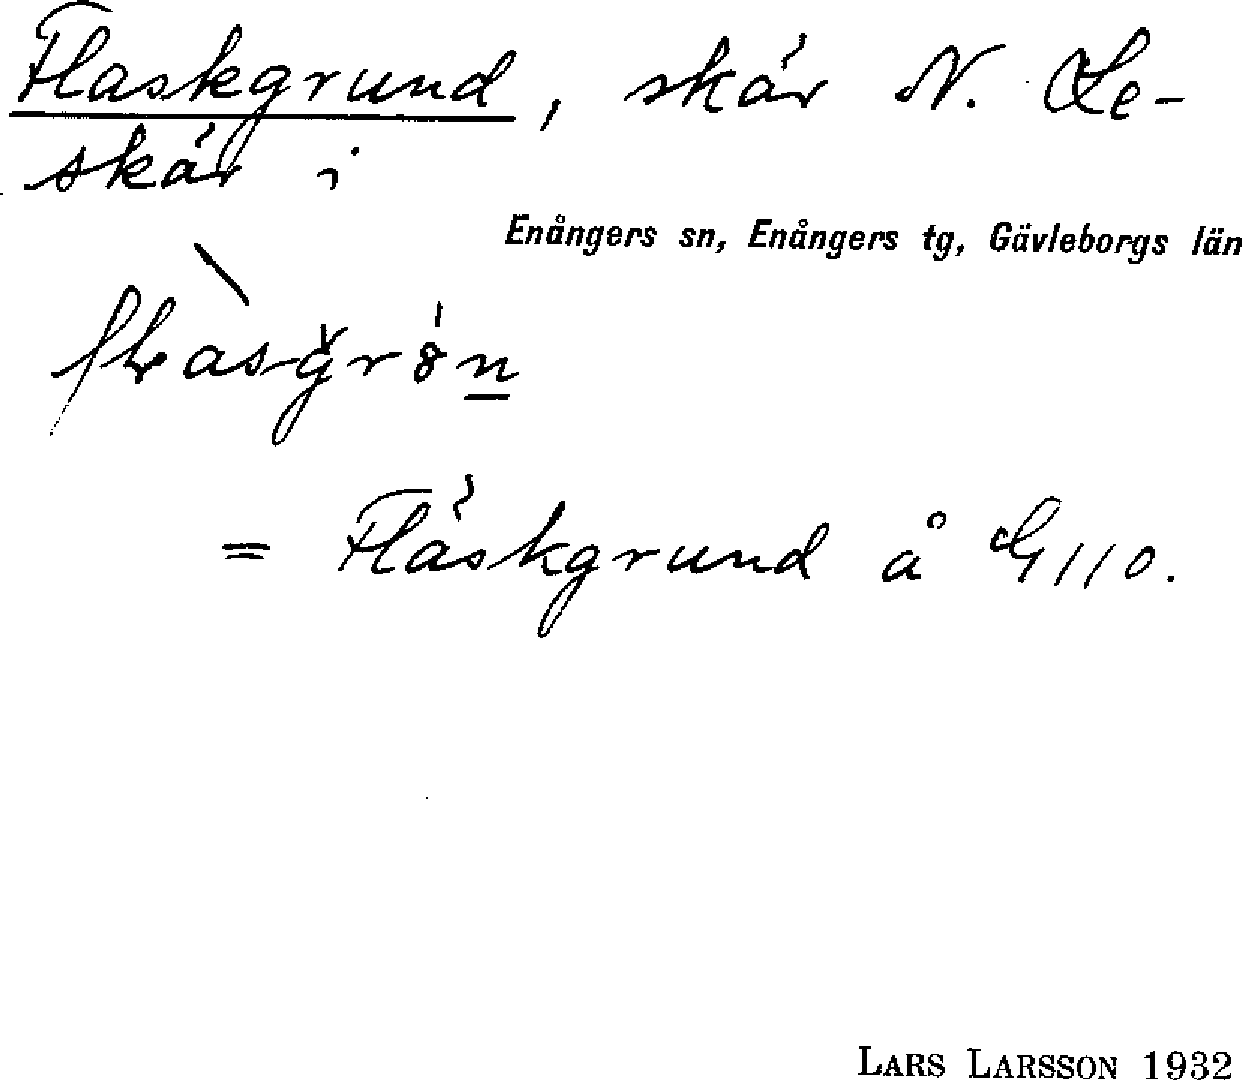 Flaskgrund, skär N. Le-
skär i
Enångers sn, Enångers tg, Gävleborgs län
= Fläskgrund å G 110.
LARS LARSSON 1932